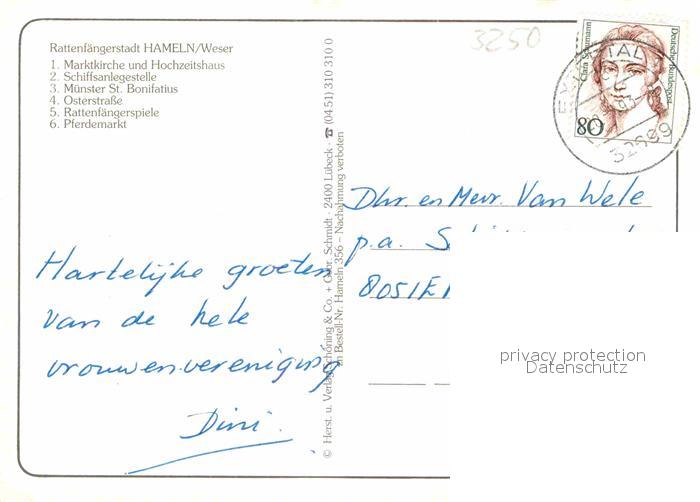 Rattenfängerstadt HAMELN/Weser
1. Marktkirche und Hochzeitshaus
2. Schiffsanlegestelle
3. Münster St. Bonifatius
4. Osterstraße
5. Rattenfängerspiele
6. Pferdemarkt
3250
Clara Schumann
Deutsche Bundespost
80
32699
© Herst. u. Verlag Schöning & Co. + Gebr. Schmidt · 2400 Lübeck · ☎ (04 51) 310 310 0
Bestell-Nr. Hameln 356 – Nachahmung verboten
Dhr. en Mevr. Van Wele
p.a. S
8051E
Hartelijke groeten
van de hele
vrouwenvereniging
Dini.
privacy protection
Datenschutz